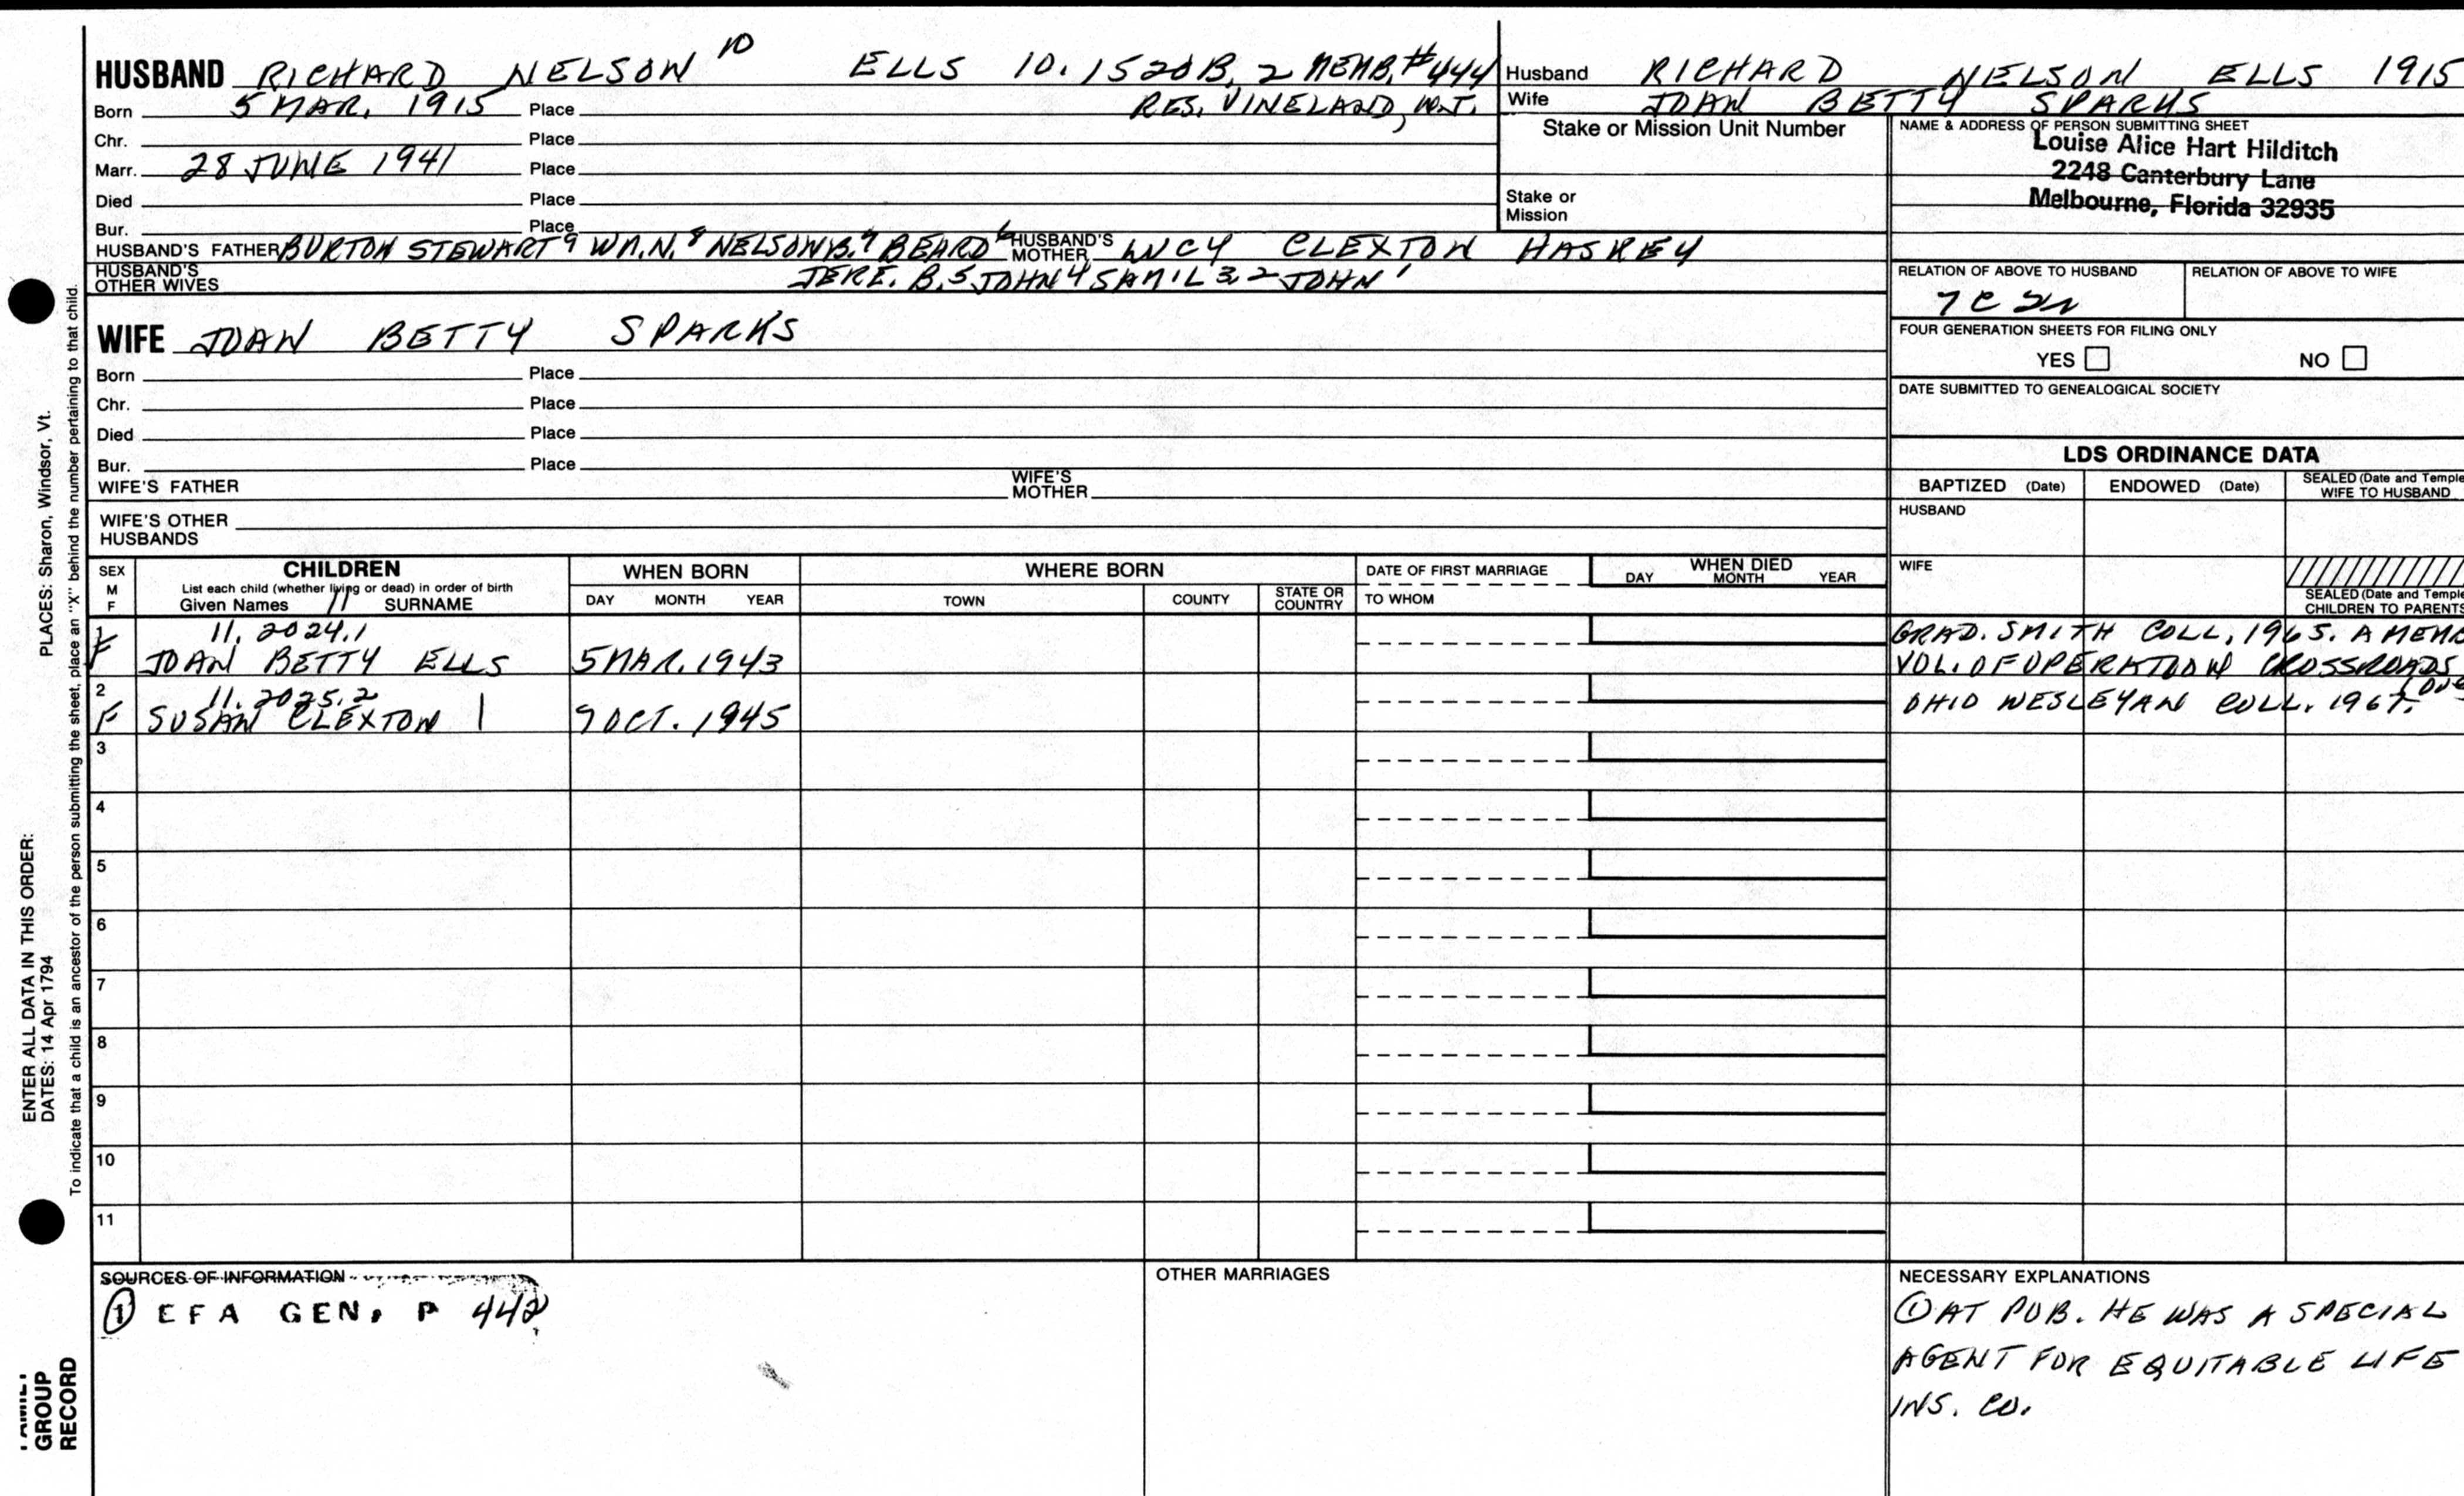 HUSBAND RICHARD NELSON 10 ELLS 10.1520B, 2 MEMB, #444
Born 5 MAR. 1915 Place RES. VINELAND, N.J.
Chr. Place
Marr. 28 JUNE 1941 Place
Died Place
Bur. Place
HUSBAND'S FATHER BURTON STEWART 9 WM.N. 8 NELSON B. 7 BEARD 6 HUSBAND'S MOTHER LUCY CLEXTON HASKEY
HUSBAND'S OTHER WIVES JERE. B. 5 JOHN 4 SAM'L 3, 2 JOHN 1
Husband RICHARD NELSON ELLS 1915
Wife JOAN BETTY SPARKS
Stake or Mission Unit Number
Stake or
Mission
NAME & ADDRESS OF PERSON SUBMITTING SHEET
Louise Alice Hart Hilditch
2248 Canterbury Lane
Melbourne, Florida 32935
RELATION OF ABOVE TO HUSBAND RELATION OF ABOVE TO WIFE
7 C 2r
FOUR GENERATION SHEETS FOR FILING ONLY
YES NO
DATE SUBMITTED TO GENEALOGICAL SOCIETY
WIFE JOAN BETTY SPARKS
Born Place
Chr. Place
Died Place
Bur. Place
WIFE'S FATHER WIFE'S MOTHER
WIFE'S OTHER
HUSBANDS
LDS ORDINANCE DATA
BAPTIZED (Date) ENDOWED (Date) SEALED (Date and Temple
WIFE TO HUSBAND
HUSBAND
WIFE
SEALED (Date and Temple
CHILDREN TO PARENTS
SEX
M
F
CHILDREN
List each child (whether living or dead) in order of birth
Given Names 11 SURNAME
WHEN BORN
DAY MONTH YEAR
WHERE BORN
TOWN COUNTY STATE OR COUNTRY
DATE OF FIRST MARRIAGE
TO WHOM
WHEN DIED
DAY MONTH YEAR
1 11.2024.1
F JOAN BETTY ELLS 5 MAR. 1943
GRAD. SMITH COLL, 1965. A MEMB
VOL. OF OPERATION CROSSROADS
2 11.2025.2
F SUSAN CLEXTON 9 OCT. 1945
OHIO WESLEYAN COLL. 1967.
3
4
5
6
7
8
9
10
11
SOURCES OF INFORMATION
① EFA GEN, P 442
OTHER MARRIAGES
NECESSARY EXPLANATIONS
① AT PUB. HE WAS A SPECIAL
AGENT FOR EQUITABLE LIFE
INS. CO.
ENTER ALL DATA IN THIS ORDER:
DATES: 14 Apr 1794 PLACES: Sharon, Windsor, Vt.
To indicate that a child is an ancestor of the person submitting the sheet, place an "X" behind the number pertaining to that child.
FAMILY
GROUP
RECORD